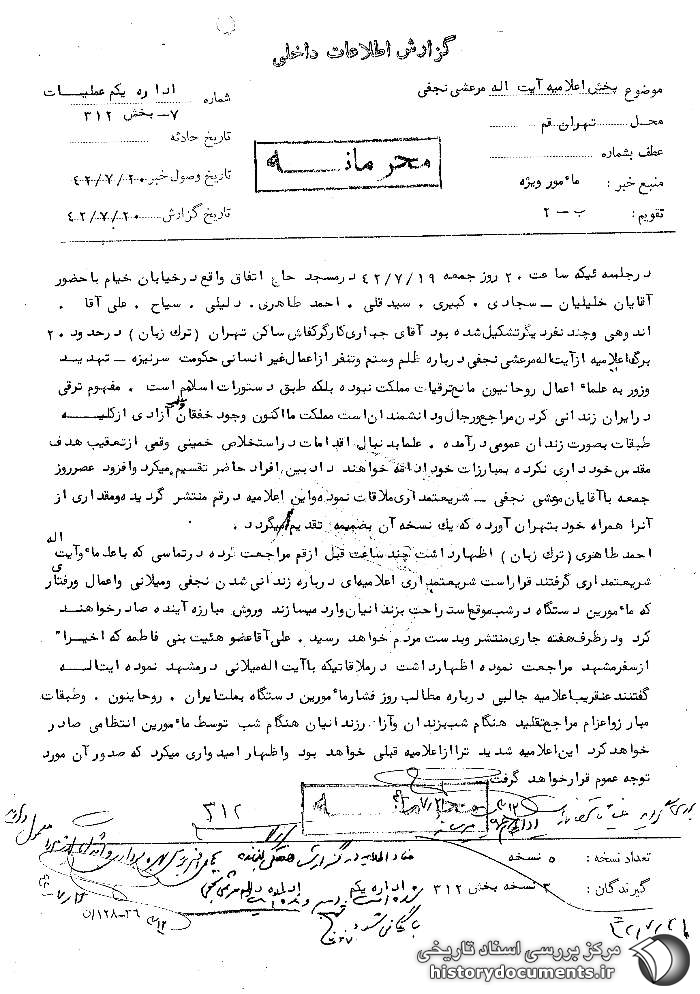 گزارش اطلاعات داخلی
موضوع بخش اعلامیه آیت اله مرعشی نجفی
محل تهران قم
عطف بشماره
منبع خبر : مأمور ویژه
تقویم : ب - ۲
محرمانه
اداره یکم عملیات
شماره ۷- بخش ۳۱۲
تاریخ حادثه
تاریخ وصول خبر ۴۲/۷/۲۰
تاریخ گزارش ۴۲/۷/۲۰
در جلسه ئیکه ساعت ۲۰ روز جمعه ۴۲/۷/۱۹ در مسجد حاج اتفاق واقع در خیابان خیام با حضور
آقایان خلیلیان - سجادی . کبیری . سید قلی . احمد طاهری . دلیلی . سیاح . علی آقا .
اند وهی و چند نفر دیگر تشکیل شده بود آقای جباری کارگر کفاش ساکن تهران (ترک زبان) در حدود ۲۰
برگ اعلامیه از آیت اله مرعشی نجفی درباره ظلم و ستم و تنفر از اعمال غیر انسانی حکومت سرنیزه - تهدید
وزور به علماء اعمال روحانیون مانع ترقیات مملکت نبوده بلکه طبق دستورات اسلام است . مفهوم ترقی
در ایران زندانی کردن مراجع و رجال و دانشمندان است مملکت ما اکنون وجود خفقان و سلب آزادی از کلیه
طبقات بصورت زندان عمومی درآمده . علما بدنبال اقدامات در استخلاص خمینی وقمی از تعقیب هدف
مقدس خود داری نکرده بمبارزات خود ادامه خواهند داد بین افراد حاضر تقسیم میکرد و افزود عصر روز
جمعه با آقایان مرعشی نجفی - شریعتمداری ملاقات نموده و این اعلامیه در قم منتشر گردیده و مقداری از
آنرا همراه خود بتهران آورده که یک نسخه آن بضمیمه تقدیم میگردد .
احمد طاهری (ترک زبان) اظهار داشت چند ساعت قبل از قم مراجعت کرده در تماسی که با علماء و آیت اله
شریعتمداری گرفتند قرار است شریعتمداری اعلامیه‌ای درباره زندانی شدن نجفی و میلانی و اعمال و رفتاری
که مأمورین دستگاه در شب موقع استراحت بزندانیان وارد میسازند و روش مبارزه آینده صادر خواهند
کرد و در ظرف هفته جاری منتشر و بدست مردم خواهد رسید . علی آقا عضو هئیت بنی فاطمه که اخیراً
از سفر مشهد مراجعت نموده اظهار داشت در ملاقاتیکه با آیت اله میلانی در مشهد نموده ایت اله
گفتند عنقریب اعلامیه جالبی درباره مطالب روز فشار مأمورین دستگاه بملت ایران . روحانیون . وطبقات
مبارز و اعزام مراجع تقلید هنگام شب بزندان و آزار زندانیان هنگام شب توسط مأمورین انتظامی صادر
خواهد کرد این اعلامیه شدید تر از اعلامیه قبلی خواهد بود و اظهار امیدواری میکرد که صدور آن مورد
توجه عموم قرار خواهد گرفت
۳۱۲
تعداد نسخه : ۵ نسخه
گیرندگان : ۳ نسخه بخش ۳۱۲ اداره یکم
بایگانی شود
مرکز بررسی اسناد تاریخی
historydocuments.ir